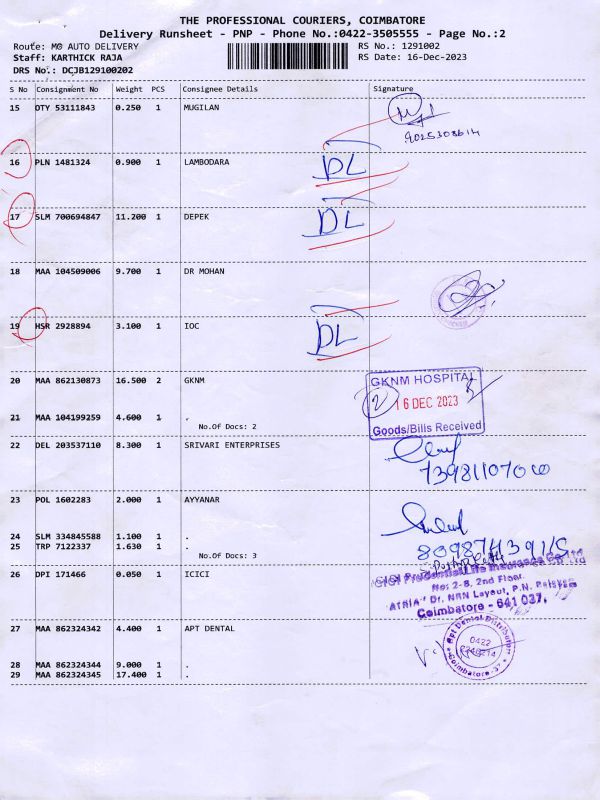 THE PROFESSIONAL COURIERS, COIMBATORE
Delivery Runsheet - PNP - Phone No.:0422-3505555 - Page No.:2
Route: M0 AUTO DELIVERY RS No.: 1291002
Staff: KARTHICK RAJA RS Date: 16-Dec-2023
DRS No.: DCJB129100202
S No Consignment No Weight PCS Consignee Details Signature
15 OTY 53111843 0.250 1 MUGILAN
16 PLN 1481324 0.900 1 LAMBODARA DL
17 SLM 700694847 11.200 1 DEPEK DL
18 MAA 104509006 9.700 1 DR MOHAN
19 HSR 2928894 3.100 1 IOC DL
20 MAA 862130873 16.500 2 GKNM GKNM HOSPITAL
2 16 DEC 2023
21 MAA 104199259 4.600 1 .
No.Of Docs: 2 Goods/Bills Received
22 DEL 203537110 8.300 1 SRIVARI ENTERPRISES
23 POL 1602283 2.000 1 AYYANAR
24 SLM 334845588 1.100 1 .
25 TRP 7122337 1.630 1 .
No.Of Docs: 3
26 DPI 171466 0.050 1 ICICI ICICI Prudential Life Insurance Co Ltd
No: 2-8, 2nd Floor
"ATRIA" Dr. NRN Layout, P.N. Palayam
Coimbatore - 641 037.
27 MAA 862324342 4.400 1 APT DENTAL
Apt Dental Distributor
0422
Coimbatore-37
28 MAA 862324344 9.000 1 .
29 MAA 862324345 17.400 1 .